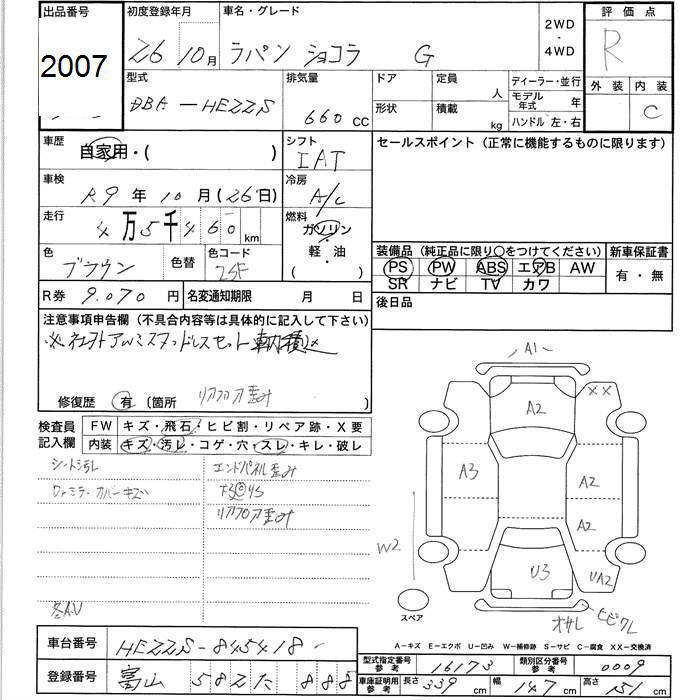 出品番号 初度登録年月 車名・グレード 2WD・4WD 評価点
2007 26 10月 ラパン ショコラ G R
型式 排気量 ドア 定員 人 ディーラー・並行 外装 内装
DBA-HE22S 660CC 形状 積載 kg モデル年式 年 C
ハンドル 左・右
車歴 自家用・( ) シフト IAT セールスポイント (正常に機能するものに限ります)
車検 R9年10月(26日) 冷房 A/C
走行 4万5千460km 燃料 ガソリン・軽・油 ( )
色 ブラウン 色替 色コード ZSF
装備品 (純正品に限り○をつけてください) 新車保証書
PS PW ABS エアB AW 有・無
SR ナビ TV カワ
R券 9.070円 名変通知期限 月 日 後日品
注意事項申告欄 (不具合内容等は具体的に記入して下さい)
※社外アルミスタッドレスセット車輌積込
修復歴 有 (箇所 リアフロア歪み )
検査員記入欄 FW キズ・飛石・ヒビ割・リペア跡・X要
内装 キズ・汚レ・コゲ・穴・スレ・キレ・破レ
シート汚レ エンドパネル歪み
Drミラーカバーキズ
リアフロア歪み
各A.U
A1
XX
A2
A3 A2
A2
W2
U3 UA2
スペア
オサレ ヒビワレ
A-キズ E-エクボ U-凹み W-補修跡 S-サビ C-腐食 XX-交換済
車台番号 HE22S-845418
型式指定番号 参考 16173 類別区分番号 参考 0009
登録番号 富山 582た 888
車庫証明用 参考 長さ 339cm 幅 147cm 高さ 151cm